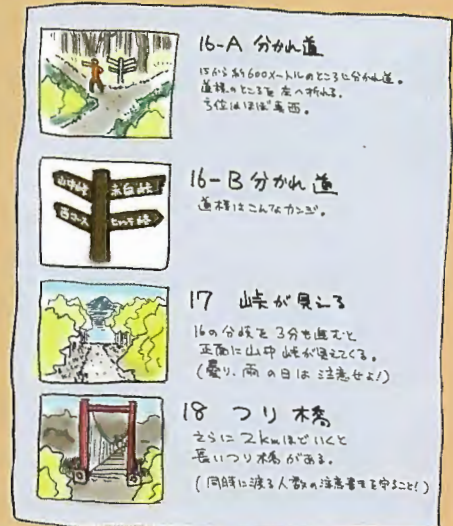 16-A 分かれ道
15から約600メートルのところに分かれ道。
道標のところを左へ折れる。
方位はほぼ真西。
16-B 分かれ道
道標はこんなカンジ。
山中峠
赤白峠
西コース
17 峠が見える
16の分岐を3分も進むと
正面に山中峠が見えてくる。
(曇り、雨の日は注意せよ!)
18 つり橋
さらに2kmほどいくと
長いつり橋がある。
(同時に渡る人数の注意書きを守ること!)